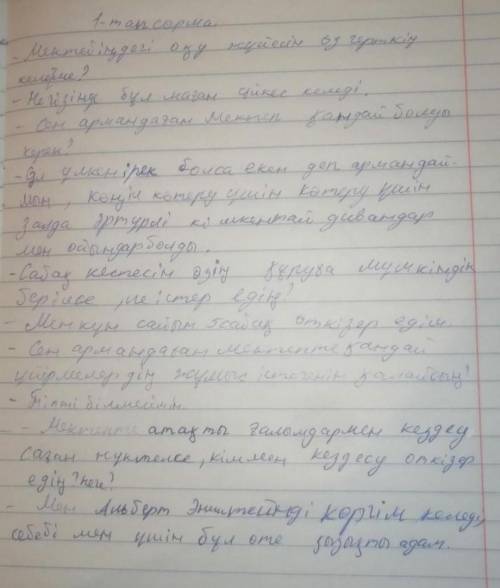 1-тапсорма.
- Мектебіңдегі оқу жүйесін өзгерткің
келеме?
- Негізінде бұл маған үйкес келеді.
- Сен армандаған Мектеп қандай болуы
керек?
- Ол үлкенірек болса екен деп армандай-
мын, көңіл көтеру үшін көтеру үшін
залда әртүрлі кішкентай дивандар
мен ойындарболды.
- Сабақ кестесін өзің құруға мүмкіндік
берілсе, не істер едің?
- Мен күн сайын 5сабақ өткізер едім.
- Сен армандаған мектепте қандай
үйірмелердің жұмыс істегенін қалайсың?
- Тіпті білмеймін.
- Мектепте атақты ғалымдармен кездесу
саған жүктелсе, кіммен кездесу өткізер
едің? Неге?
- Мен Альберт Эйнштейнді көргім келеді
себебі мен үшін бұл өте қызықты адам.